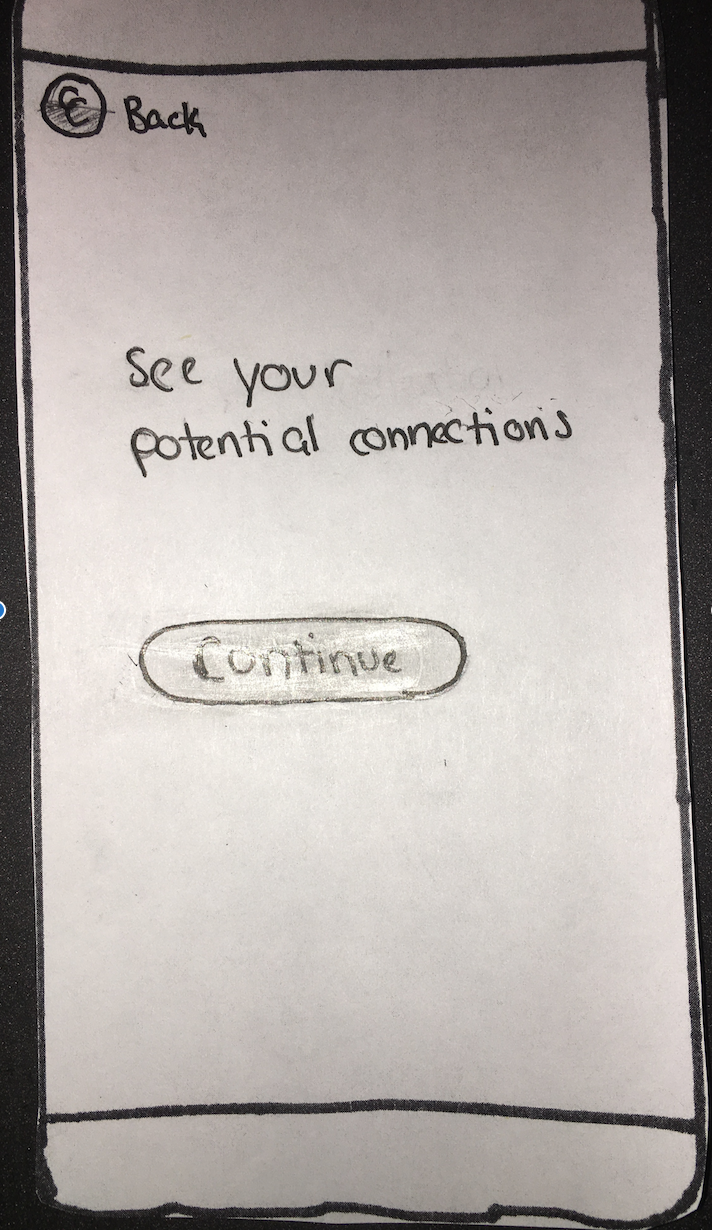 Back
See your
potential connections
Continue